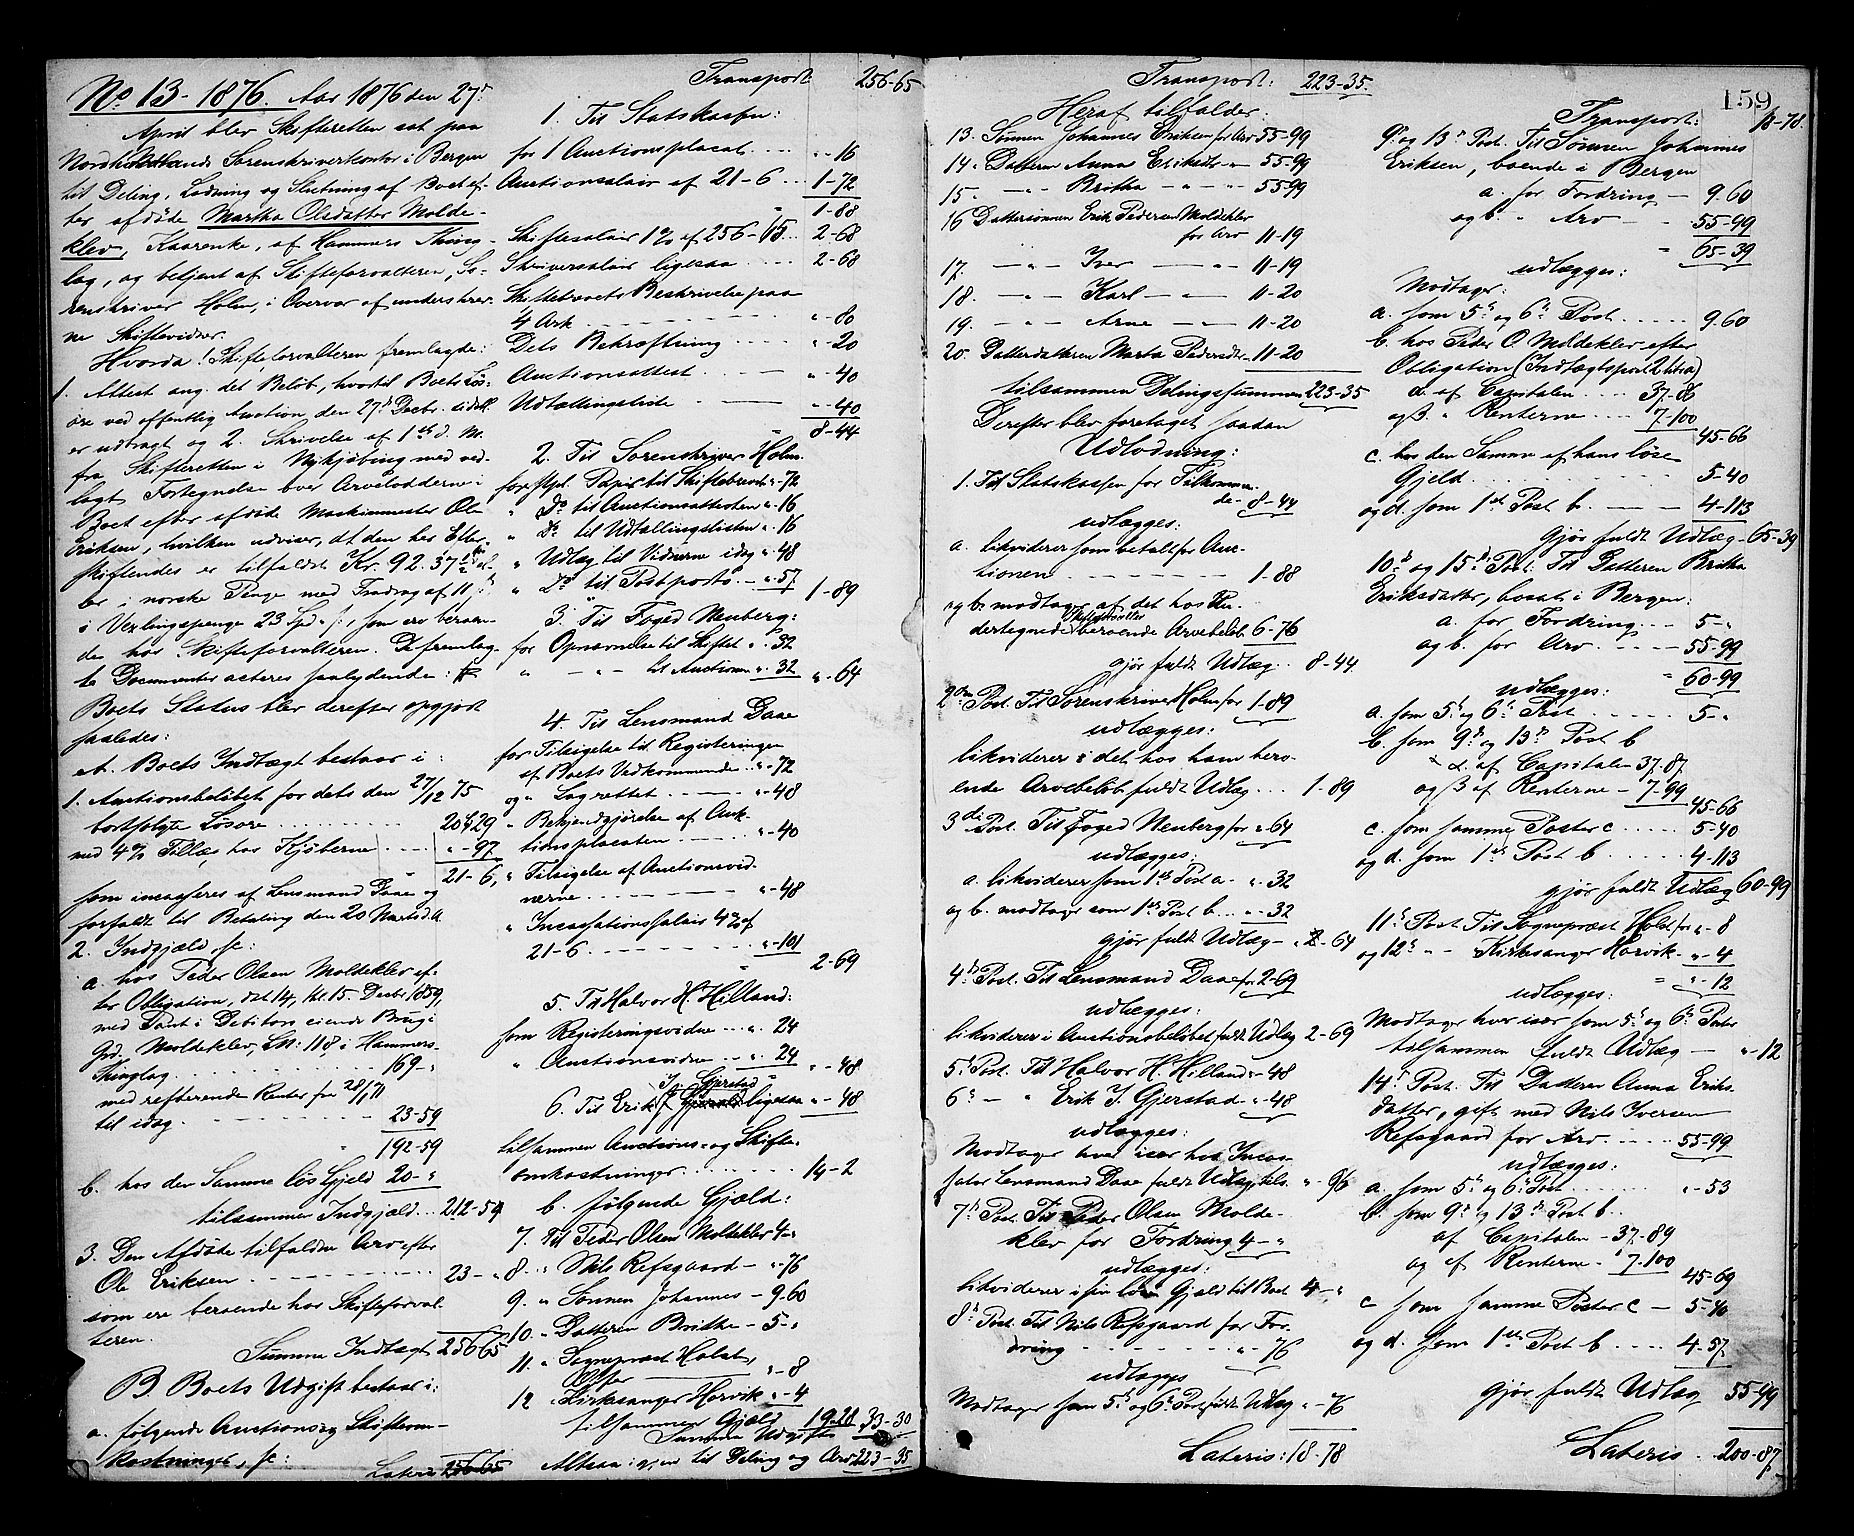 No 13 - 1876. Aar 1876 den 27de
April blev Skifteretten sat paa
Nordhordlands Sorenskriverkontor i Bergen
til Deling, Lodning og Slutning af Boet ef-
ter afdøde Martha Olsdatter Molde-
klev, Kaarenke, af Hammers Thing-
lag, og betjent af Skifteforvalteren, So-
renskriver Holm, i Overvær af underskrev-
ne Skiftevidner.
Hvorda! Skifteforvalteren fremlagde:
1. Attest ang. det Beløb, hvortil Boets Løs-
øre ved offentlig Auction den 27de Decbr. sidstl.
er udbragt og 2. Skrivelse af 1ste d. M.
fra Skifteretten i Nykjøbing med ved-
lagt Fortegnelse over Arvelodderne i
Boet efter afdøde Maskinmester Ole
Eriksen, hvilken udviser, at den her Efter-
skiftendes er tilfaldt Kr. 92. 37
ler i norske Penge med Fradrag af 11
i Vexlingspenge 23 Spd, som ero beroen-
de hos Skifteforvalteren. De fremlag-
te Documenter acteres saalydende:
Boets Status blev derefter opgjort
saaledes:
A. Boets Indtægt bestaar i:
1. Auctionsbeløbet for dets den 27/12 75
bortsolgte Løsøre 20-29
med 4% Tillæg hos Kjøberne "-97
21-6,
som incasseres af Lensmand Daae og
forfaldt til Betaling den 20 Marts d. A.
2. Indgjæld, sc:
a. hos Peder Olsen Moldeklev ef-
ter Obligation, dat 14, thl. 15. Decbr 1859,
med Pant i Debitors eiende Brug i
Grd. Moldeklev, LN: 118 i Hammers
Thinglag 169-"
med resterende Renter fra 28/1 71
til idag 23-59
192-59
b. hos den Samme løs Gjeld 20-"
tilsammen Indgjæld 212-59
3. Den Afdøde tilfalden Arv efter
Ole Eriksen 23-"
som ere beroende hos Skifteforval-
teren.
Summa Indtægt 256-65
B. Boets Udgift bestaar i:
a. følgende Auctions og Skifteom-
kostninger, sc:
Lateris 256-65
Transport 256-65
1. Til Statskassen:
for 1 Auctionsplacat "-16
Auctionssalair af 21-6 1-72
1-88
Skiftesalair 1% af 256-65 2-68
Skriversalair ligesaa 2-68
Skifteboets Beskrivelse paa
4 Ark "-80
Dets Bekræftning "-20
Auctionsattest "-40
Udtallingsliste "-40
8-44
2. Til Sorenskriver Holm.
for stpl. Papir til Skiftebrevet "-72
" Do til Auctionsattesten "-16
" Do til Udtallingslisten "-16
" Udlæg til Vidnerne idag "-48
" Do til Postporto "-57
1-89
3. Til Foged Nenberg:
for Opnævnelse til Skiftet "-32
" — " til Auctionen "-32 "-64
4. Til Lensmand Daae
for Tilsigelse til Registeringen
af Boets Vedkommende "-72
og " Lagrettet "-48
" Bekjendtgjørelse af Auk-
tionsplacaten "-40
" Tilsigelse af Auctionsvid-
nerne "-48
" Incassationssalair 4% af
21-6 "-101
2-69
5. Til Halvor H. Hilland:
som Registeringsvidne "-24
" Auctionsvidne "-24
"-48
6. Til Erik J. Gjerstad ligesaa "-48
tilsammen Auctions- og Skifte-
omkostninger 14-2
b. følgende Gjæld:
7. Til Peder Olsen Moldeklev 4-"
8. " Nils Refsgaard "-76
9. " Sønnen Johannes 9-60
10. " Datteren Britha 5-"
11. " Sogneprest Holst,
Offer "-8
12 " Kirksanger Horvik "-4
tilsammen Gjæld 19-28 33-30
Summa Udgift
Altsaa igjen til Deling og Arv 223-35
159
Transport: 223-35.
Heraf tilfalder:
13. Sønnen Johannes Eriksen for Arv 55-99
14. Datteren Anna Eriksdtr " 55-99
15. —"— Britha —"—"— 55-99
16 Dattersønnen Erik Pedersen Moldeklev
for Arv 11-19
17. —"— Iver —"— 11-19
18. —"— Karl —"— 11-20
19. —"— Arne —"— 11-20
20. Datterdatteren Marta Pedersdtr 11-20
tilsammen Delingssummen 223-35
Derefter blev foretaget saadan
Udlodning:
1. Til Statskassen for Tilkommen-
de 8-44
udlægges:
a. likviderer som betalt for Auc-
tionen 1-88
og b. modtager af det hos Un-
dertegnede Skifteforvalter beroende Arvebeløb 6-76
gjør fuldt Udlæg 8-44
2den Post. Til Sorenskriver Holm for 1-89
udlægges:
likviderer i det hos ham bero-
ende Arvebeløb fuldt Udlæg 1-89
3die Post. Til Foged Nenberg for "-64
udlægges:
a. likviderer som 1ste Post a "-32
og b. modtager som 1ste Post b "-32
gjør fuldt Udlæg "-64
4de Post. Til Lensmand Daae for 2-69
udlægges:
likviderer i Auctionsbeløbet fuldt Udlæg 2-69
5te Post. Til Halvor H. Hilland "-48
6te — " Erik J. Gjerstad "-48
udlægges:
Modtager hver især hos Incas-
sator Lensmand Daae fuldt Udlæg tils. "-96
7de Post. Til Peder Olsen Molde-
klev for Fordring 4-"
udlægges:
likviderer i sin løse Gjæld til Boet 4-"
8de Post. Til Nils Refsgaard for For-
dring "-76
udlægges
Modtager som 5te og 6te Post fuldt Udlæg "-76
Lateris: 18-78
Transport: 18-78
9de og 13de Post. Til Sønnen Johannes
Eriksen, boende i Bergen
a. for Fordring 9-60
og b. " Arv 55-99
65-39
udlægges:
Modtager:
a. som 5te og 6te Post 9-60
b. hos Peder O. Moldeklev efter
Obligation (Indtægtspost 2 litra a)
α. af Capitalen 37-86
og β. " Renterne 7-100
45-66
c. hos den Samme af hans løse
Gjeld 5-40
og d. som 1ste Post b. 4-113
gjør fuldt Udlæg 65-39
10de og 15de Post. Til Datteren Britha
Eriksdatter, bosat i Bergen:
a. for Fordring 5-"
og b. for Arv 55-99
60-99
udlægges:
a. som 5te og 6te Post 5-"
b. som 9de og 13de Post b
α. af Capitalen 37-87
og β af Renterne 7-99
45-66
c. som samme Poster c 5-40
og d. som 1ste Post b 4-113
gjør fuldt Udlæg 60-99
11te Post. Til Sogneprest Holst for "-8
og 12te — " Kirksanger Horvik "-4
"-12
udlægges:
Modtager hver især som 5te og 6te Poster
tilsammen fuldt Udlæg "-12
14de Post. Til Datteren Anna Eriks-
datter, gift med Nils Iversen
Refsgaard for Arv 55-99
udlægges:
a. som 5te og 6te Post "-53
b. som 9de og 13de Post b.
af Capitalen 37-89
og af Renterne 7-100
45-69
c som samme Poster c 5-40
og d. som 1ste Post b 4-57
gjør fuldt Udlæg 55-99
Lateris 200-87